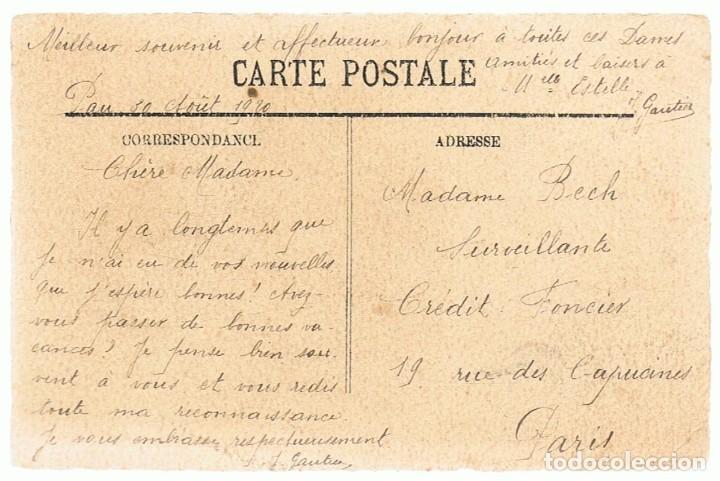 Meilleur souvenir et affectueux bonjour à toutes ces Dames
Amitiés et baisers à
Melle Estelle
J. Gautier
CARTE POSTALE
Pau 30 Août 1920
CORRESPONDANCE
Chère Madame.
Il y a longtemps que
je n'ai eu de vos nouvelles
que j'espère bonnes! Avez-
vous passer de bonnes va-
cances? Je pense bien sou-
vent à vous et vous redis
toute ma reconnaissance.
Je vous embrasse respectueusement
J. Gautier
ADRESSE
Madame Bech
Surveillante
Crédit Foncier
19 rue des Capucines
Paris
todocoleccion.net